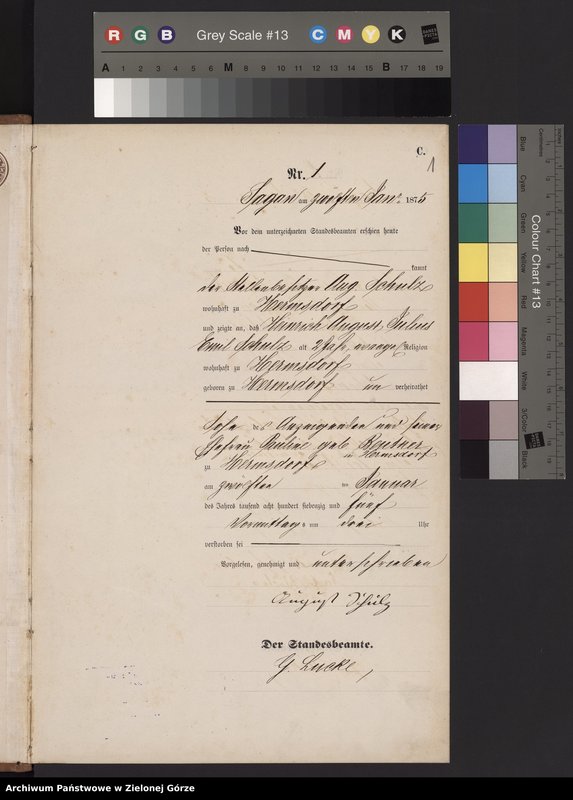 R G B Grey Scale #13 C M Y K
A 1 2 3 4 5 6 M 8 9 10 11 12 13 14 15 B 17 18 19
C.
1
Nr. 1
Sagan am zwölften Jan. 1875
Vor dem unterzeichneten Standesbeamten erschien heute
der Person nach
kannt
der Stellenbesitzer Aug. Schulz
wohnhaft zu Hermsdorf
und zeigte an, daß Heinrich August Julius
Emil Schulz alt 2 Jahr evange. Religion
wohnhaft zu Hermsdorf
geboren zu Hermsdorf un verheirathet
Sohn des Anzeigenden und seiner
Ehefrau Pauline geb. Rentner
in Hermsdorf
zu Hermsdorf
am zwölften Januar
des Jahres tausend acht hundert siebenzig und fünf
Vormittags um drei Uhr
verstorben sei
Vorgelesen, genehmigt und unterschrieben
August Schulz
Der Standesbeamte.
G. Lucke,
Colour Chart #13
Blue Cyan Green Yellow Red Magenta White 3/Color Black
Centimetres
Archiwum Państwowe w Zielonej Górze